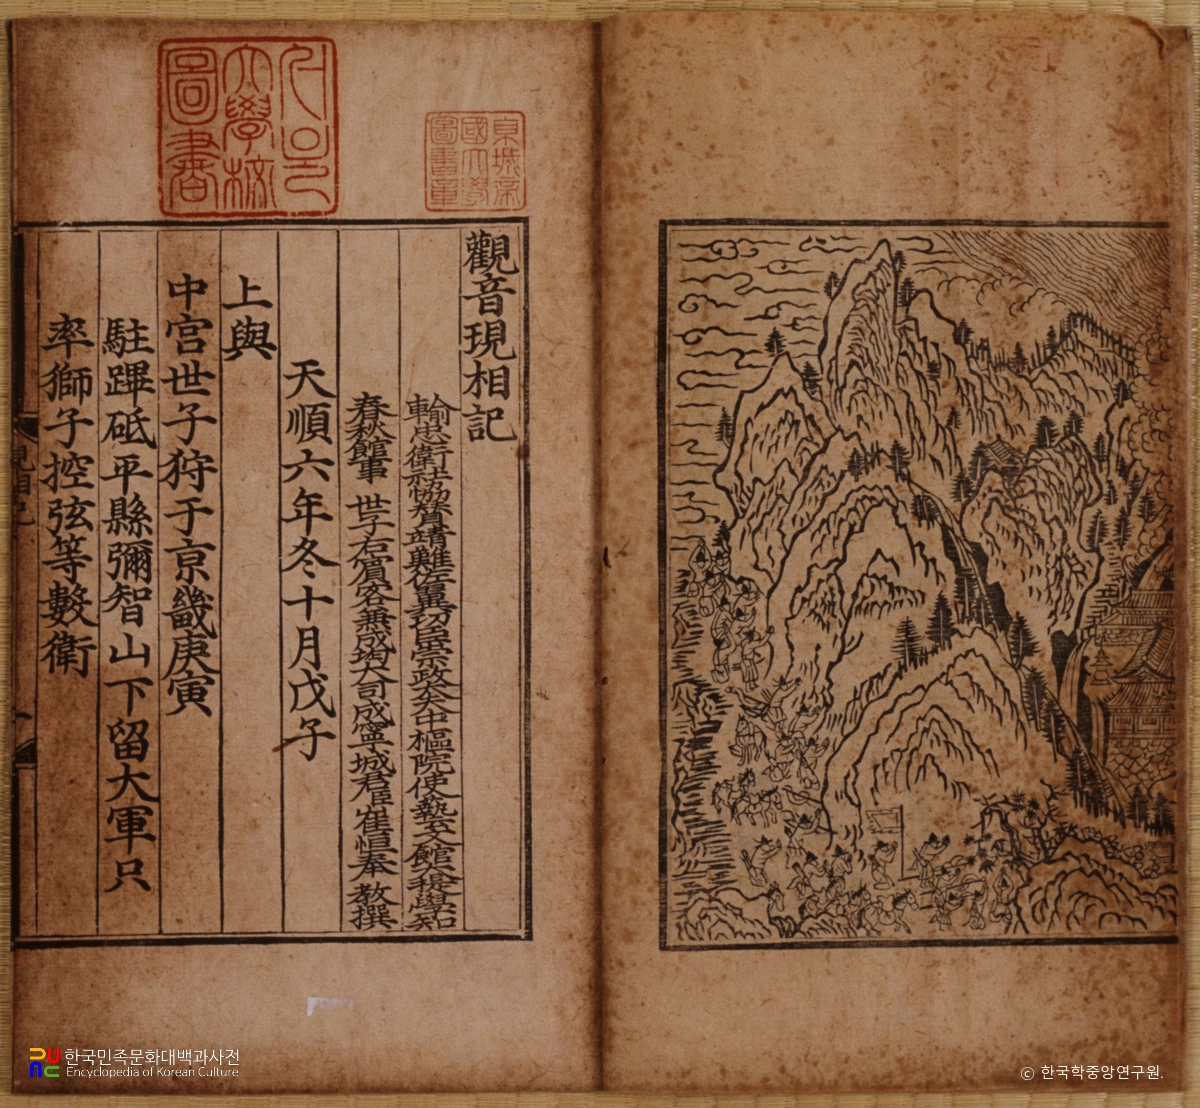 觀音現相記
輸忠衛社協贊靖難佐翼功臣崇政大夫中樞院使藝文館大提學知
春秋館事 世子右賓客兼成均大司成寧城君臣崔恒奉 教撰
天順六年冬十月戊子
上與
中宮世子狩于京畿庚寅
駐蹕砥平縣彌智山下留大軍只
率獅子控弦等數衛
서울
大學校
圖書
京城帝
國大學
圖書章
한국민족문화대백과사전
Encyclopedia of Korean Culture
ⓒ 한국학중앙연구원.